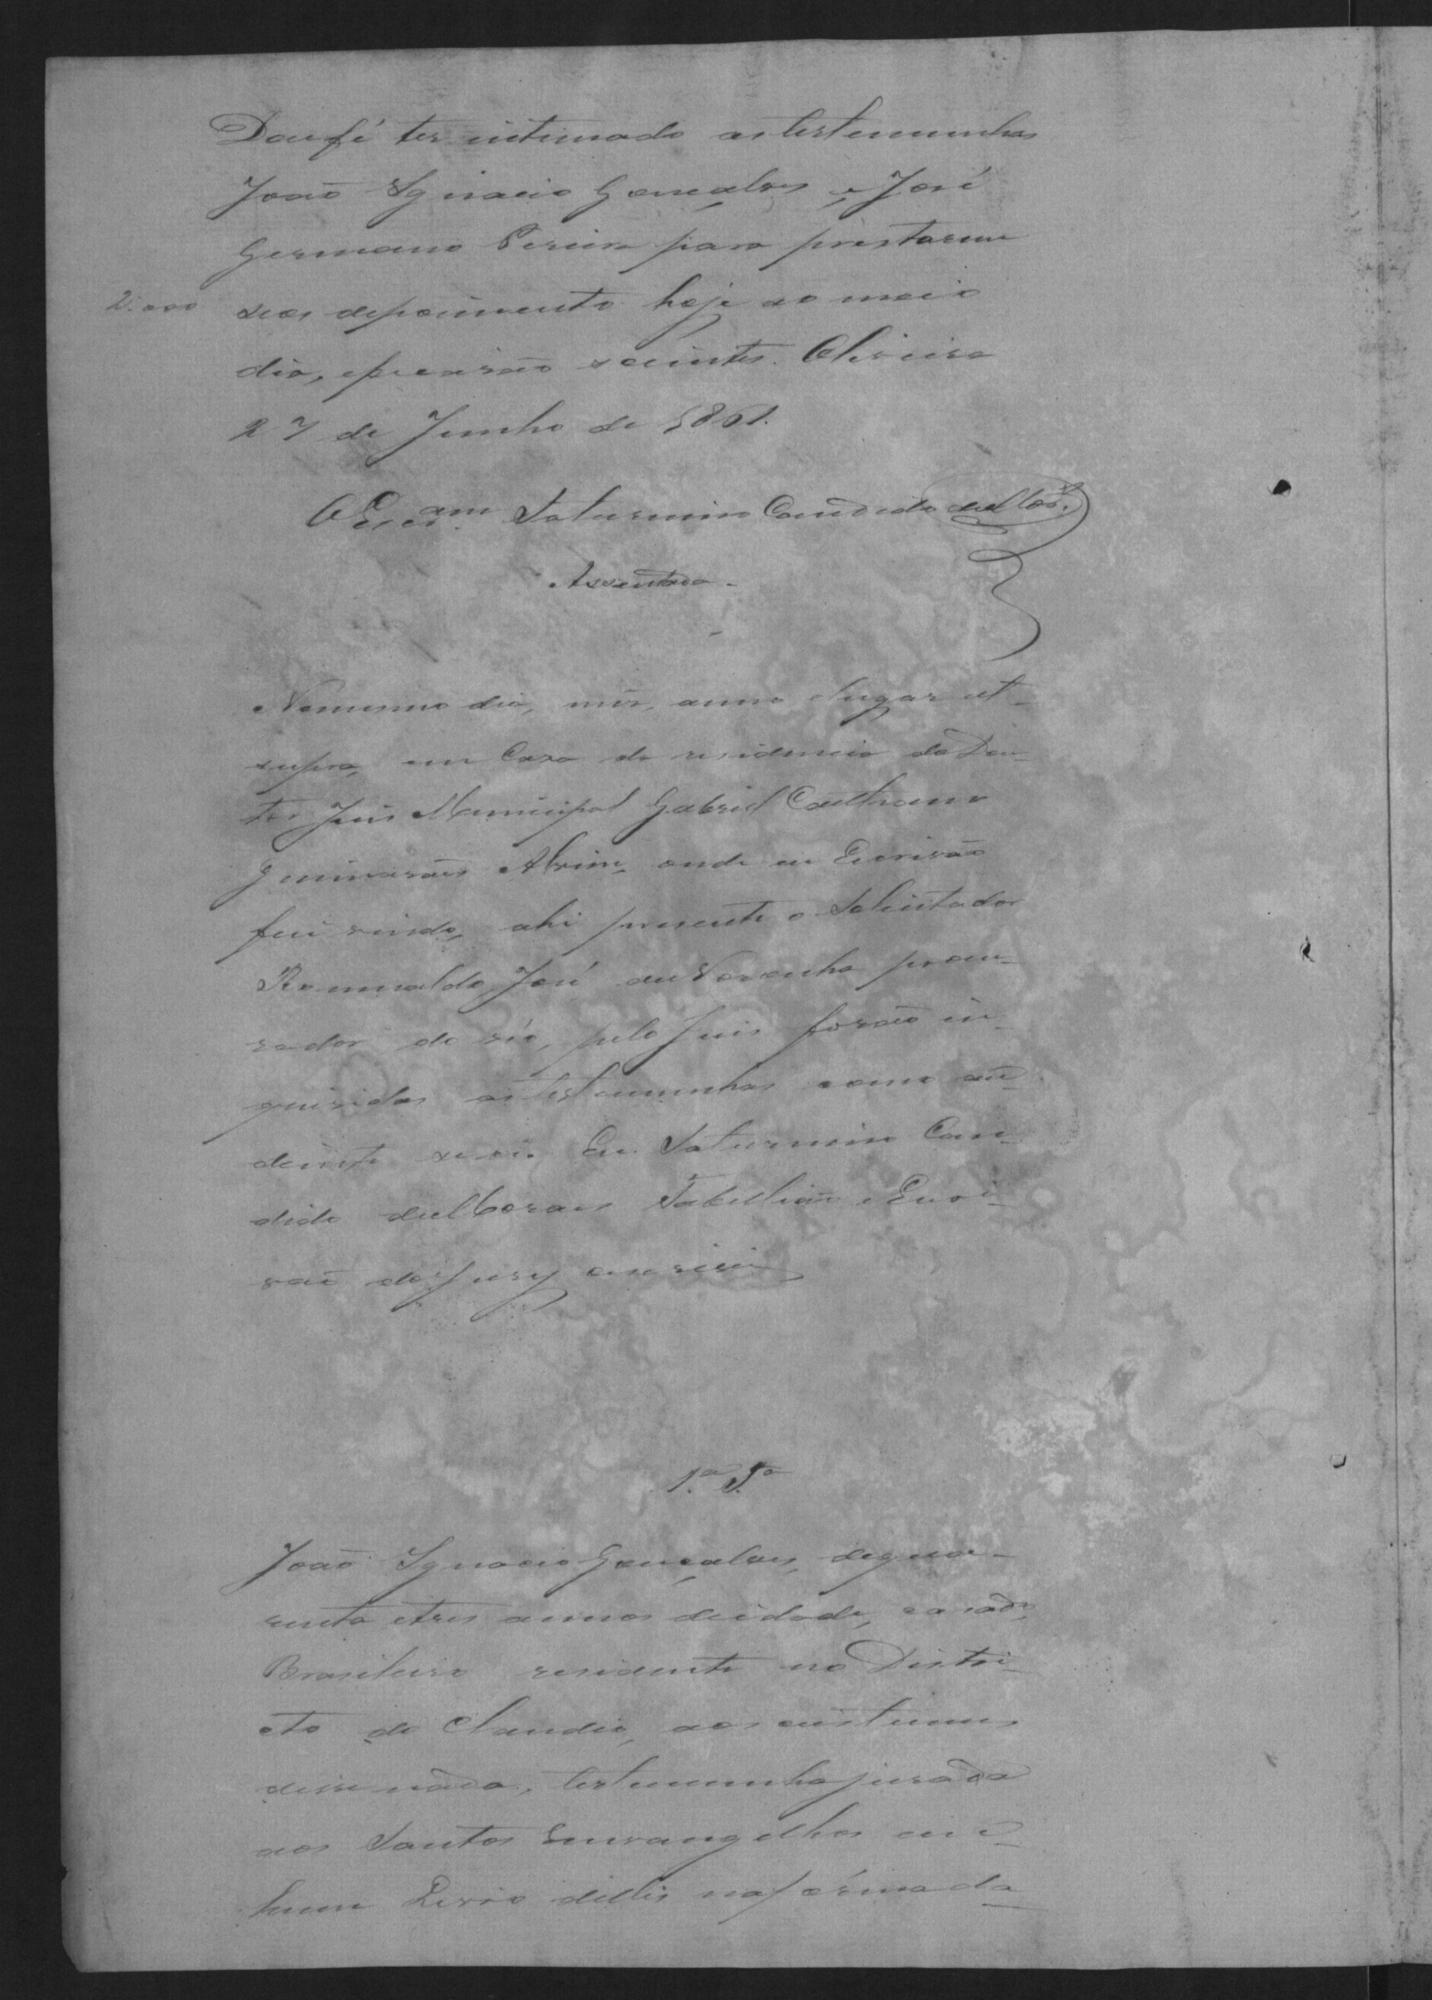 Dou fé ter intimado as testemunhas
João Ignacio Gonçalves, e José
Germano Pereira para prestarem
2.000 seos depoimento hoje ao meio
dia, e ficarão scientes. Oliveira
27 de Junho de 1861.
O Escr.am Saturnino Candido de Mor.s
Assentada.
No mesmo dia, mes, anno e lugar ut
supra, em Caza de residencia do Dou-
tor Juis Municipal Gabriel Caethano
Guimarães Alvim, onde eu Escrivão
fui vindo, ahi presente o Solicitador
Romualdo José de Noronha procu-
rador do réo, pelo Juis forão in-
queridas as testemunhas como adi
diante se vê. Eu Saturnino Can-
dido de Moraes Tabellião e Escri-
vão do Jury escrevi
1.a T.a
João Ignacio Gonçalves, de qua-
renta e tres annos de idade, casado,
Brasileiro residente no Distri-
cto do Claudio, aos custumes
disse nada, testemunha jurada
aos Santos Euvangelhos em
hum Livro delles na fórma da